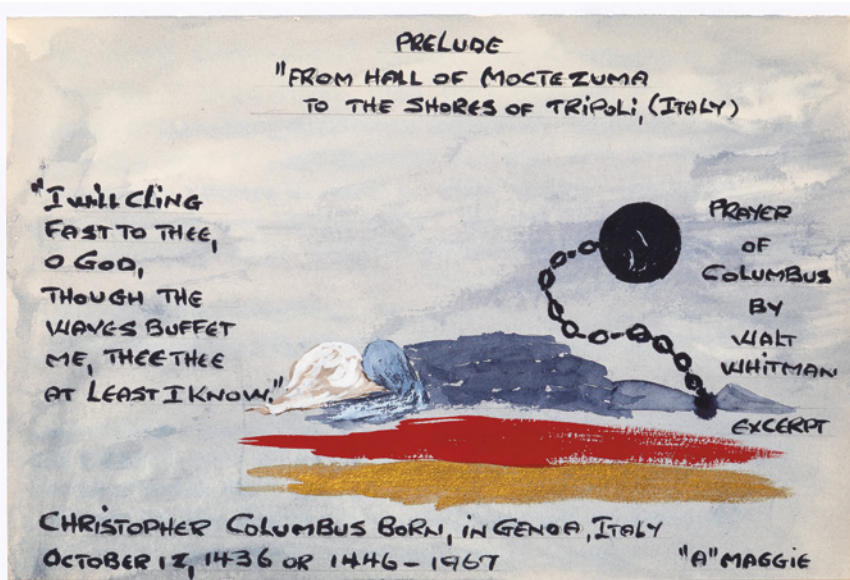 PRELUDE
"FROM HALL OF MOCTEZUMA
TO THE SHORES OF TRIPOLI, (ITALY)
"I will CLiNG
FAST TO THEE,
O GOD,
THOUGH THE
WAVES BUFFET
ME, THEE THEE
AT LEAST I KNOW."
PRAYER
OF
COLUMBUS
BY
WALT
WHITMAN
EXCERPT
CHRISTOPHER COLUMBUS BORN, iN GENOA, ITALY
OCTOBER 12, 1436 OR 1446 - 1967
"A" MAGGIE